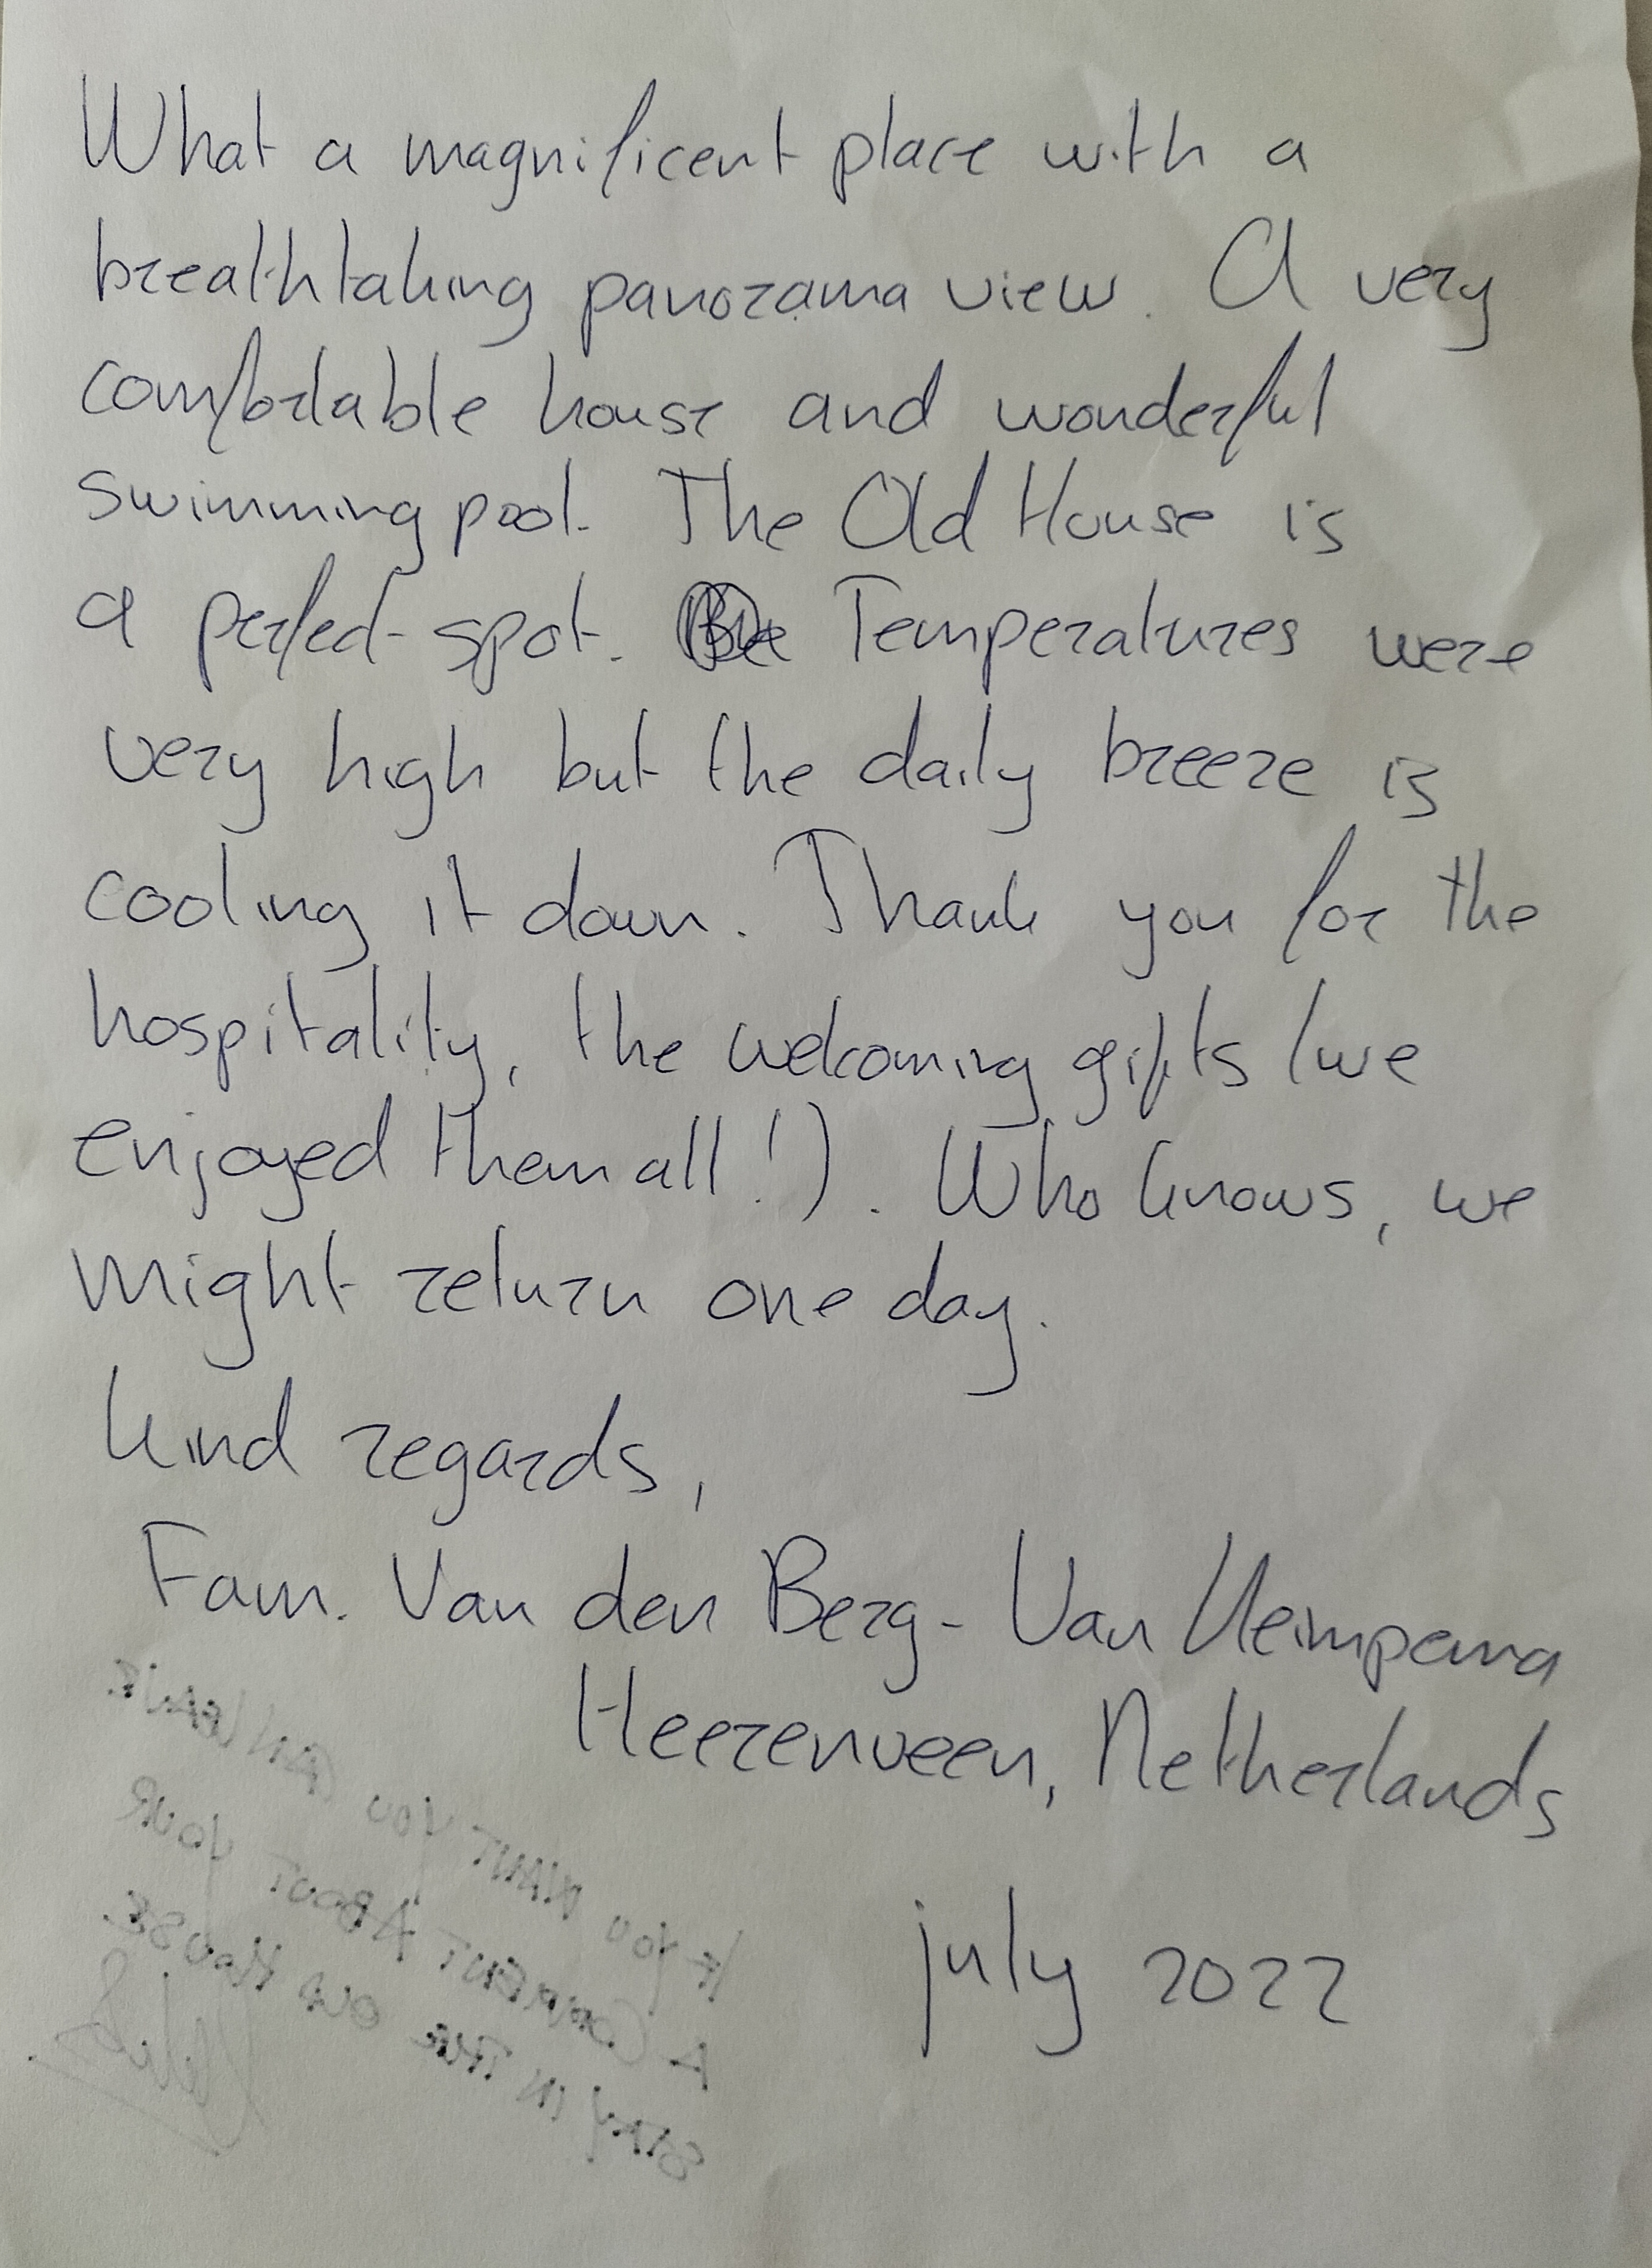 What a magnificent place with a
breathtaking panorama view. A very
comfortable house and wonderful
swimmingpool. The Old House is
a perfect spot. Temperatures were
very high but the daily breeze is
cooling it down. Thank you for the
hospitality, the welcoming gifts (we
enjoyed them all!). Who knows, we
might return one day.
kind regards,
Fam. Van den Berg - Van Kleimpema
Heerenveen, Netherlands
july 2022
IF YOU WANT YOU CAN LEAVE
A COMMENT ABOUT YOUR
STAY IN THE OLD HOUSE.